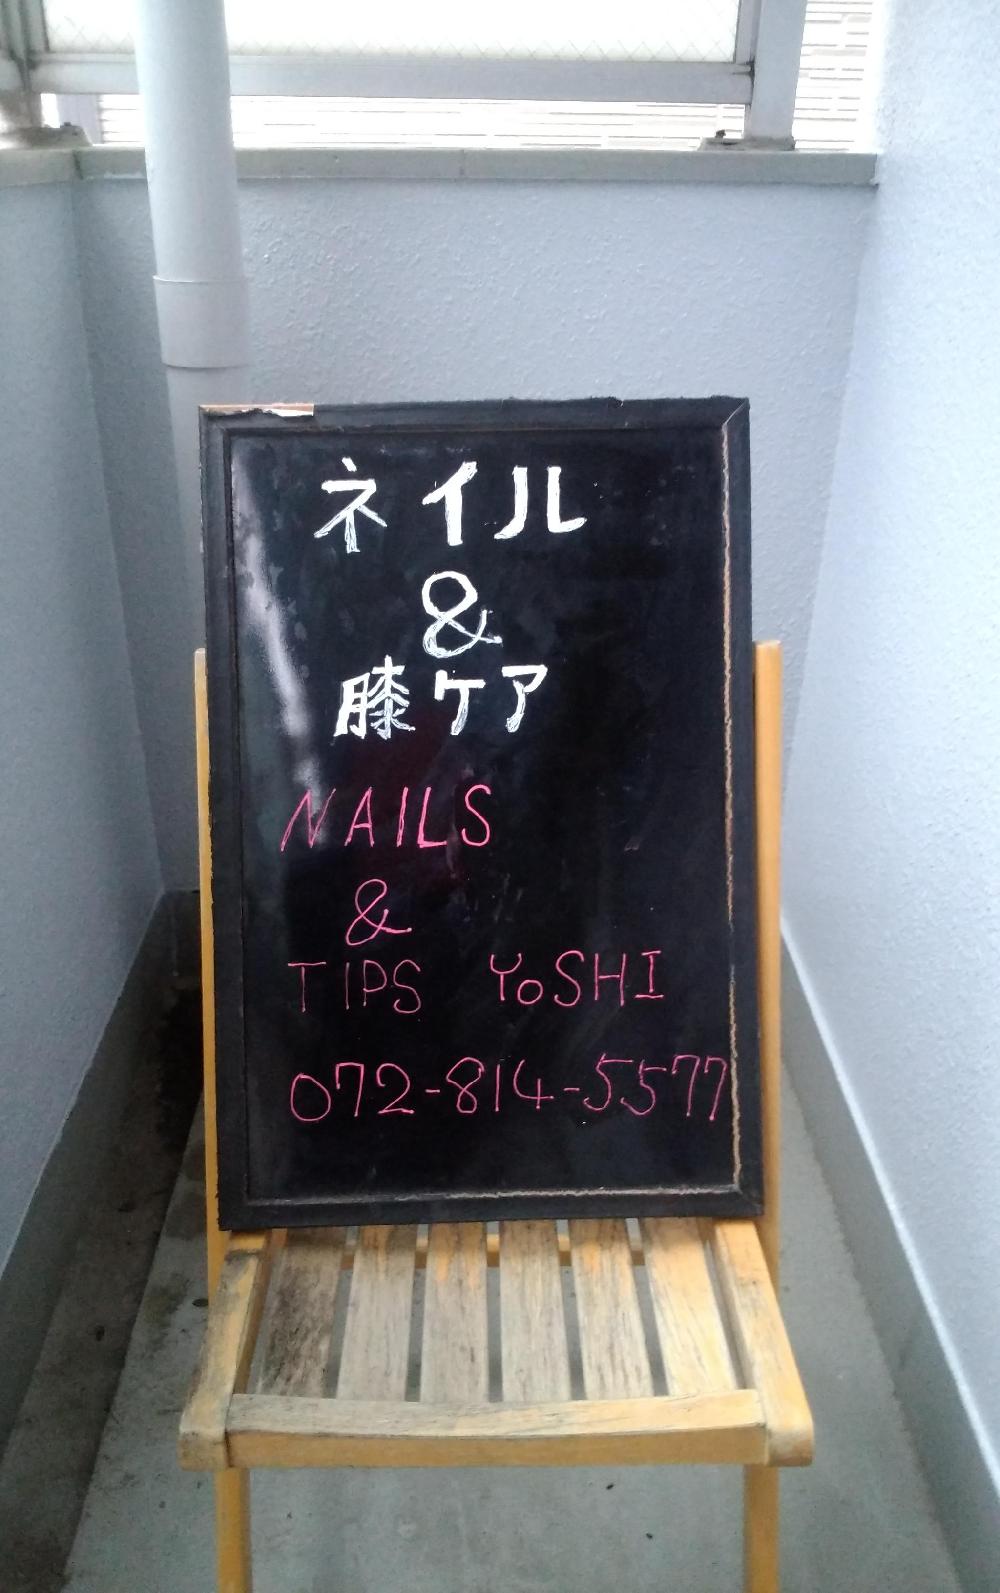 ネイル
&
膝ケア
NAILS
&
TIPS YoSHI
072-814-5577